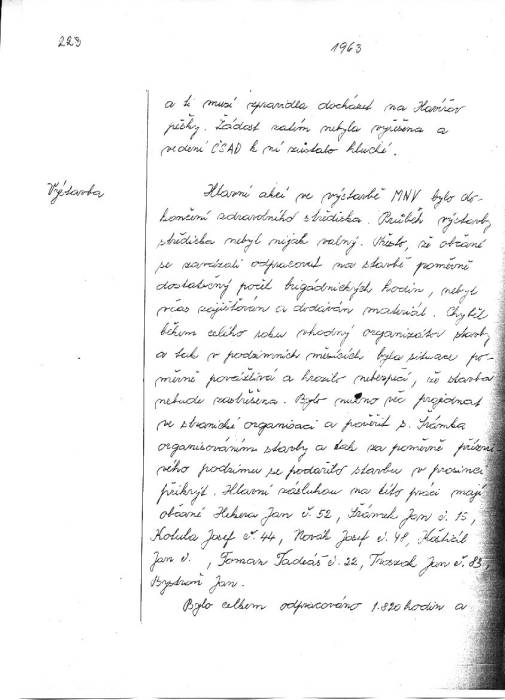 223
1963
a ti musí zpravidla docházet na Havířov
pěšky. Žádost zatím nebyla vyřešena a
vedení ČSAD k ní zůstalo hluché.
Výstavba
Hlavní akcí ve výstavbě MNV bylo do-
končení zdravotního střediska. Průběh výstavby
střediska nebyl nijak valný. Přesto, že občané
se zavázali odpracovat na stavbě poměrně
dostatečný počet brigádnických hodin, nebyl
včas zajišťován a dodáván materiál. Chyběl
během celého roku vhodný organizátor stavby
a tak v podzimních měsících byla situace po-
měrně povážlivá a hrozilo nebezpečí, že stavba
nebude zastřešena. Bylo nutno věc projednat
ve stranické organisaci a pověřit s. Šrámka
organisováním stavby a tak za poměrně přízni-
vého podzimu se podařilo stavbu v prosinci
přikrýt. Hlavní zásluhou na této práci mají
občané Hekera Jan č. 52, Šrámek Jan č. 15,
Kotula Josef č. 44, Novák Josef č. 48,
Jan č. , Foman Tadeáš č. 22, Jan č. 83,
Bystroň Jan.
Bylo celkem odpracováno 1.820 hodin a